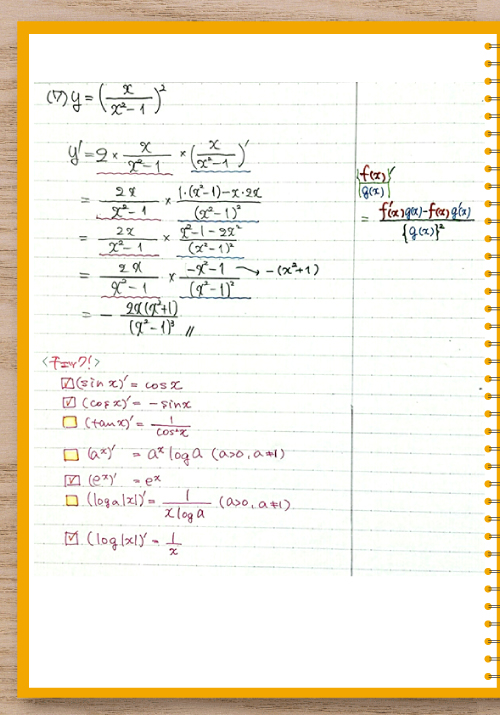 (ウ) y = (x/(x²-1))²
y' = 2 × x/(x²-1) × (x/(x²-1))'
= 2x/(x²-1) × {1·(x²-1)-x·2x}/(x²-1)²
= 2x/(x²-1) × (x²-1-2x²)/(x²-1)²
= 2x/(x²-1) × (-x²-1)/(x²-1)² → -(x²+1)
= - 2x(x²+1)/(x²-1)³ //
{f(x)/g(x)}'
= {f'(x)g(x)-f(x)g'(x)}/{g(x)}²
<チェック!>
☑ (sin x)' = cos x
☑ (cos x)' = -sin x
□ (tan x)' = 1/cos²x
□ (aˣ)' = aˣ log a (a>0, a≠1)
☑ (eˣ)' = eˣ
□ (log a|x|)' = 1/(x log a) (a>0, a≠1)
☑ (log|x|)' = 1/x